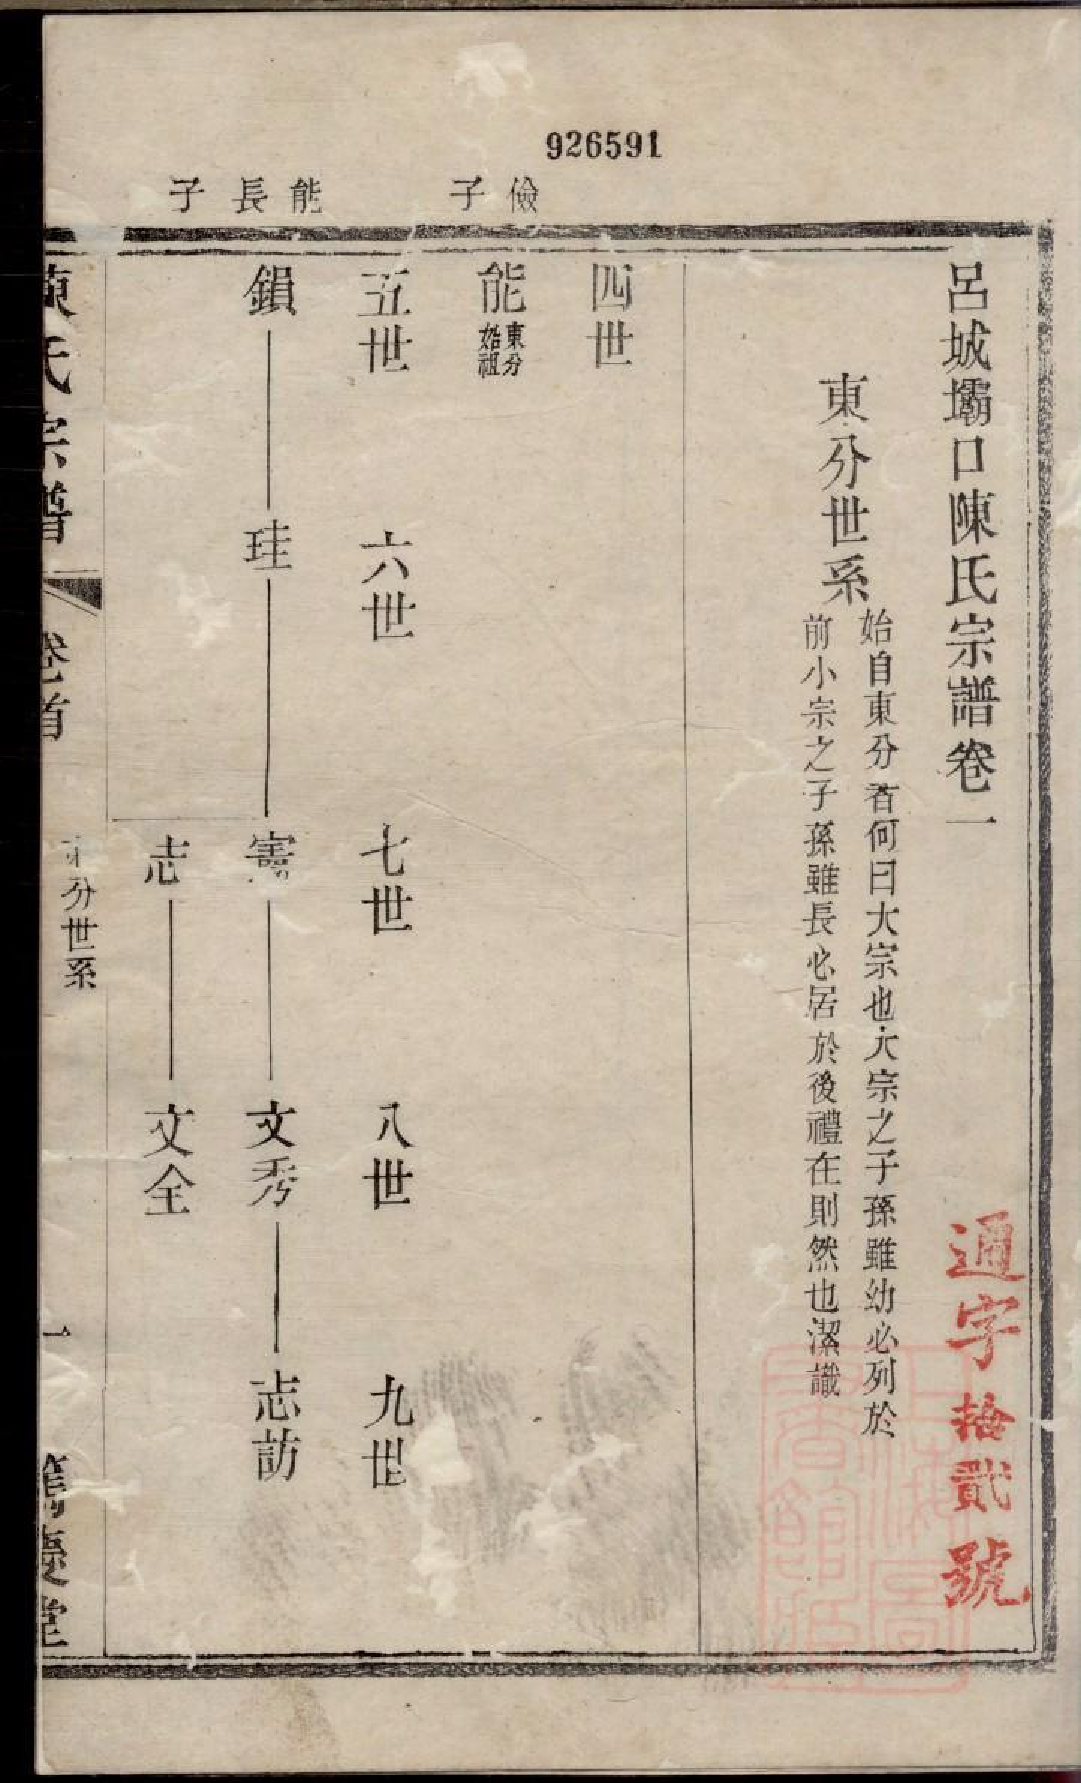 926591
儉子
能長子
呂城壩口陳氏宗譜卷一
通字拾貳號
東分世系
始自東分者何曰大宗也大宗之子孫雖幼必列於
前小宗之子孫雖長必居於後禮在則然也潔識
四世
能
東分
始祖
五世 六世 七世 八世 九世
鎖 珪 憲 文秀 志訪
志 文全
陳氏宗譜 卷首 東分世系 一
上海圖
書館藏